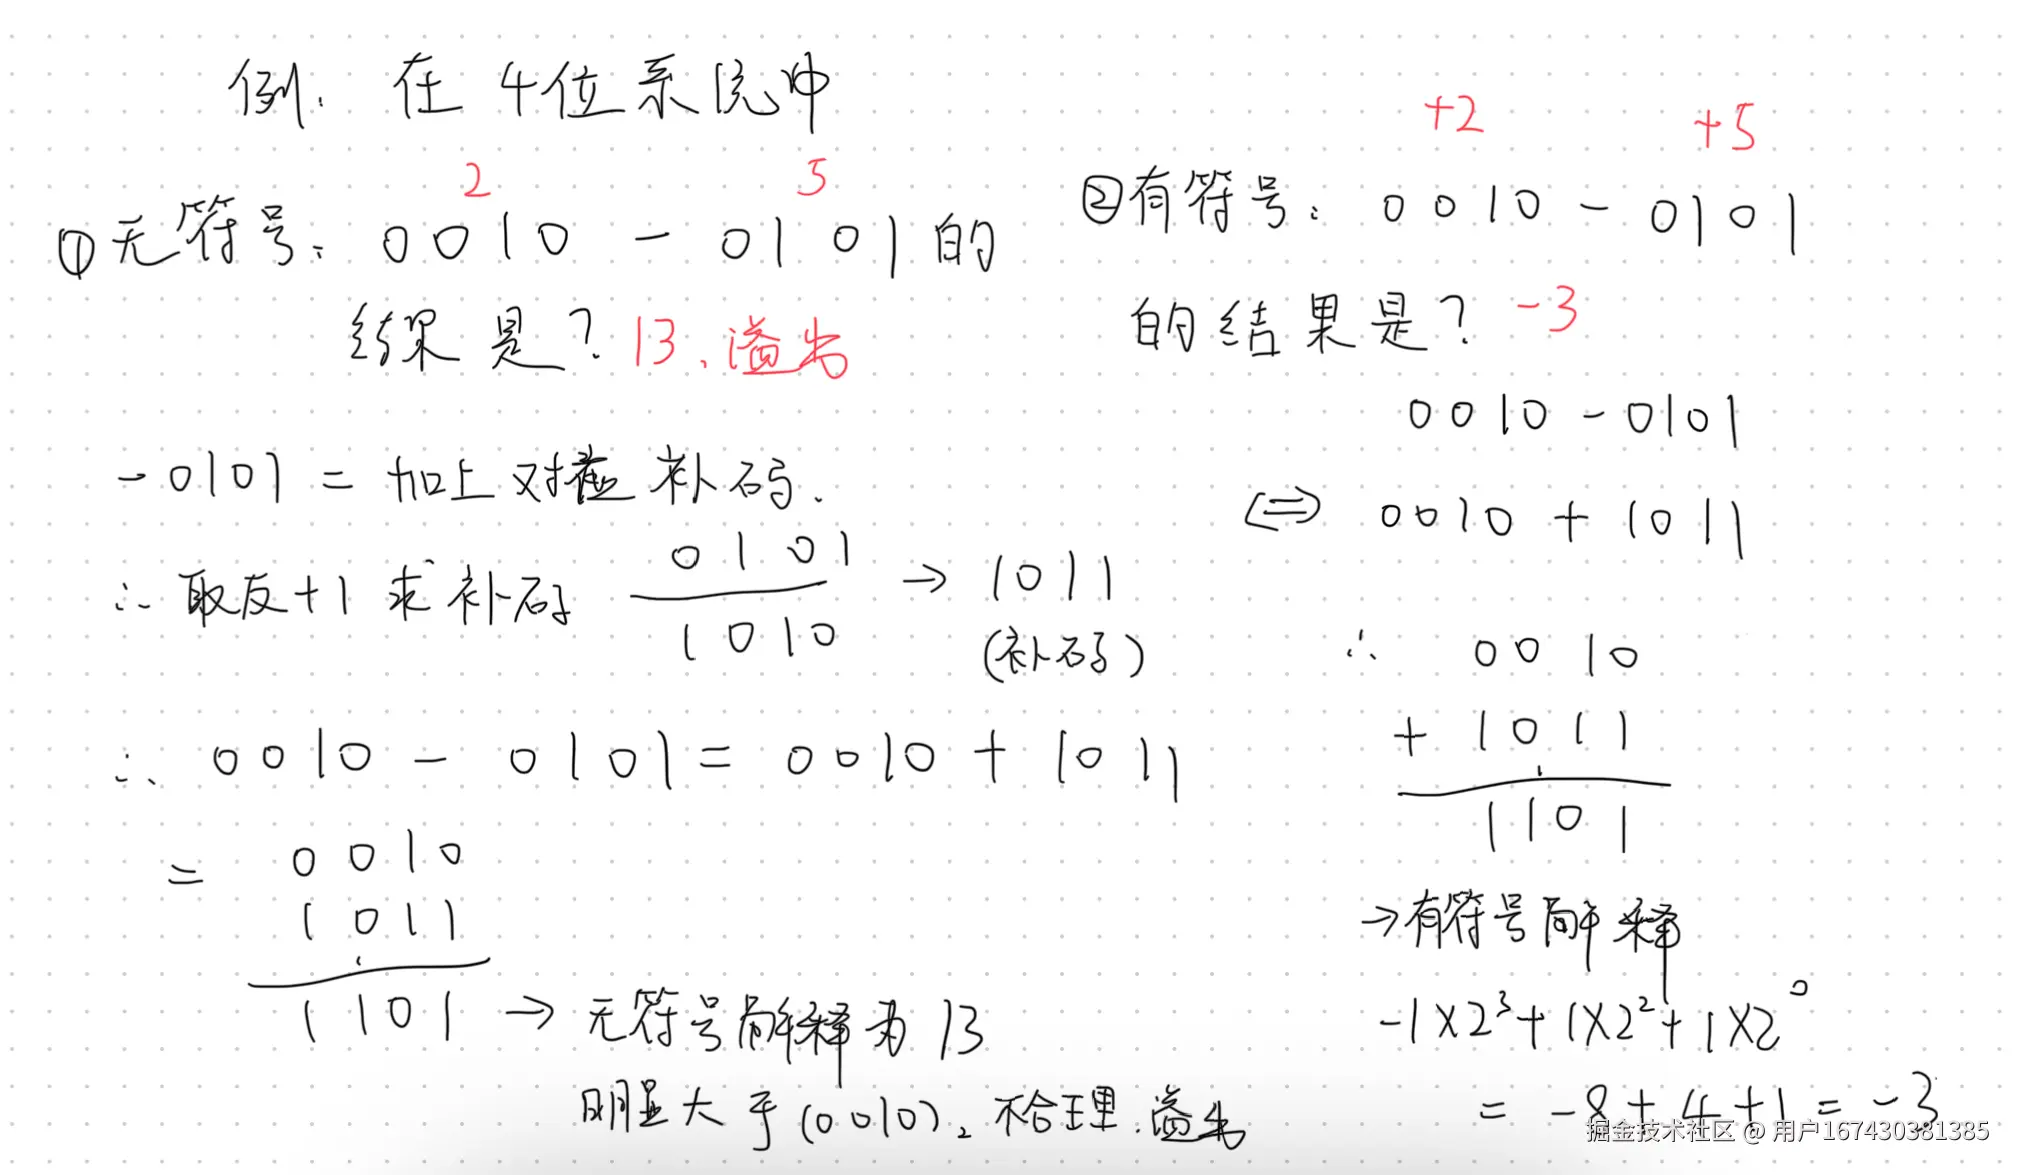 例: 在4位系统中
2 5
①无符号: 0010 - 0101的
结果是? 13、溢出
-0101 = 加上对应补码.
∴ 取反+1求补码 0101 → 1011
1010 (补码)
∴ 0010 - 0101 = 0010 + 1011
= 0010
1011
1101 → 无符号解释为13
明显大于(0010)₂ 不合理.溢出
+2 +5
②有符号: 0010 - 0101
的结果是? -3
0010 - 0101
⇔ 0010 + 1011
∴ 0010
+ 1011
1101
→有符号解释
-1×2³+1×2²+1×2⁰
= -8+4+1 = -3
掘金技术社区 @ 用户167430381385